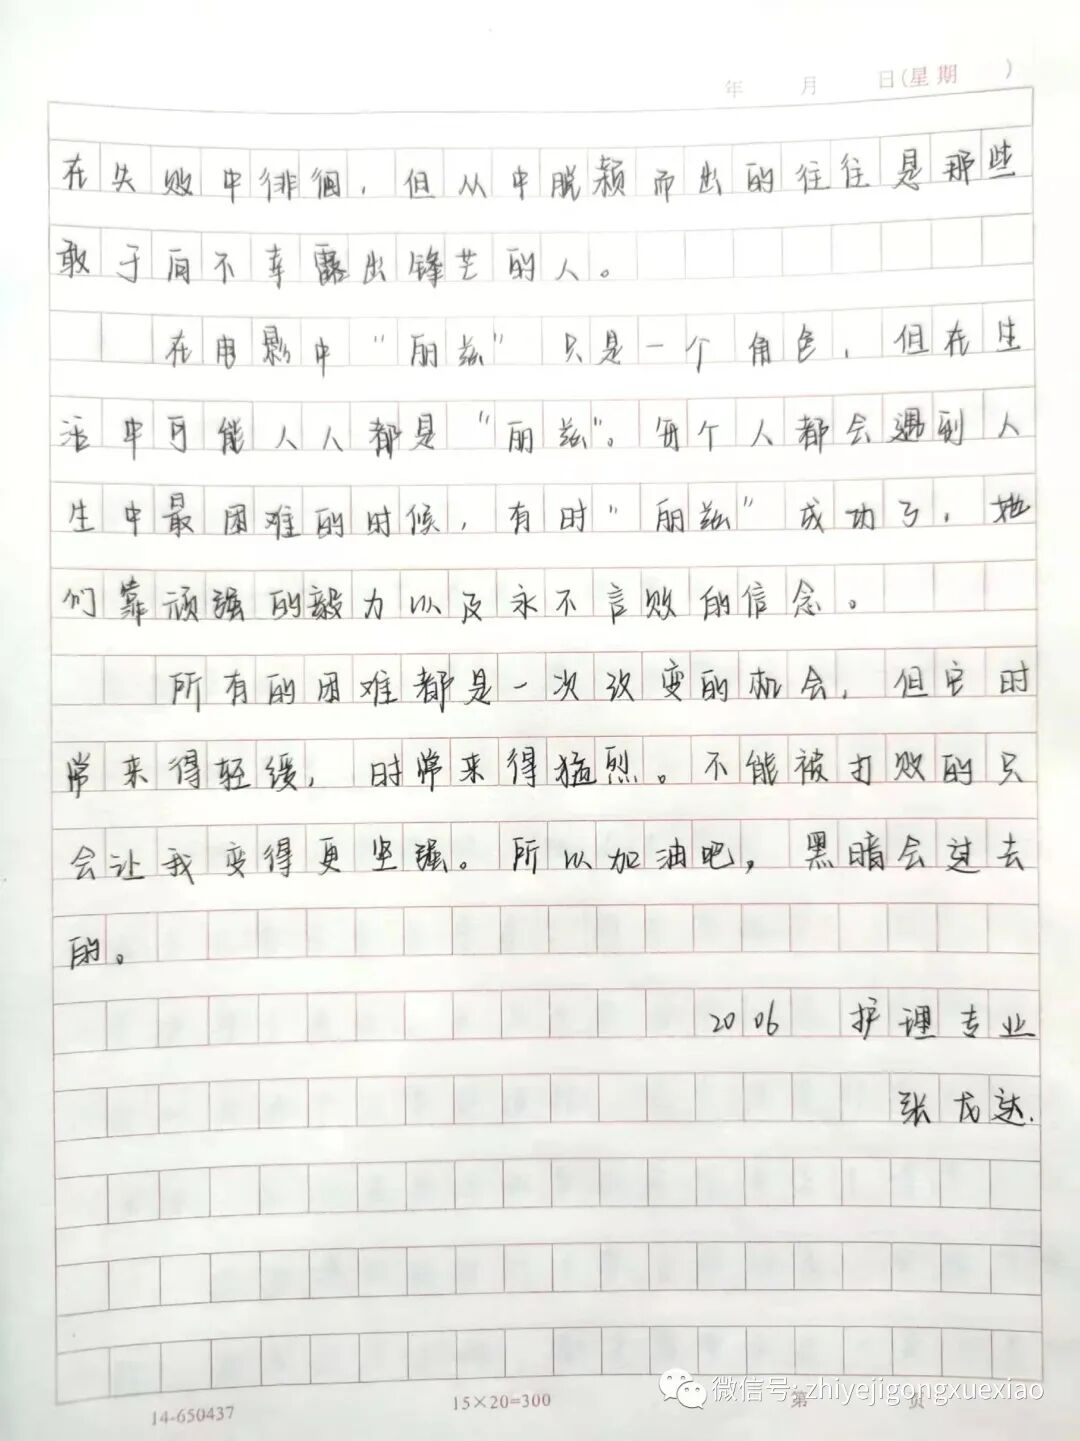 年 月 日(星期 )
在失败中徘徊，但从中脱颖而出的往往是那些
敢于向不幸露出锋芒的人。
在电影中“丽兹”只是一个角色，但在生
活中可能人人都是“丽兹”。每个人都会遇到人
生中最困难的时候，有时“丽兹”成功了，她
们靠顽强的毅力以及永不言败的信念。
所有的困难都是一次改变的机会，但它时
常来得轻缓，时常来得猛烈。不能被打败的只
会让我变得更坚强。所以加油吧，黑暗会过去
的。
2006 护理专业
张龙达.
14-650437
15×20=300
第 页
微信号: zhiyejigongxuexiao